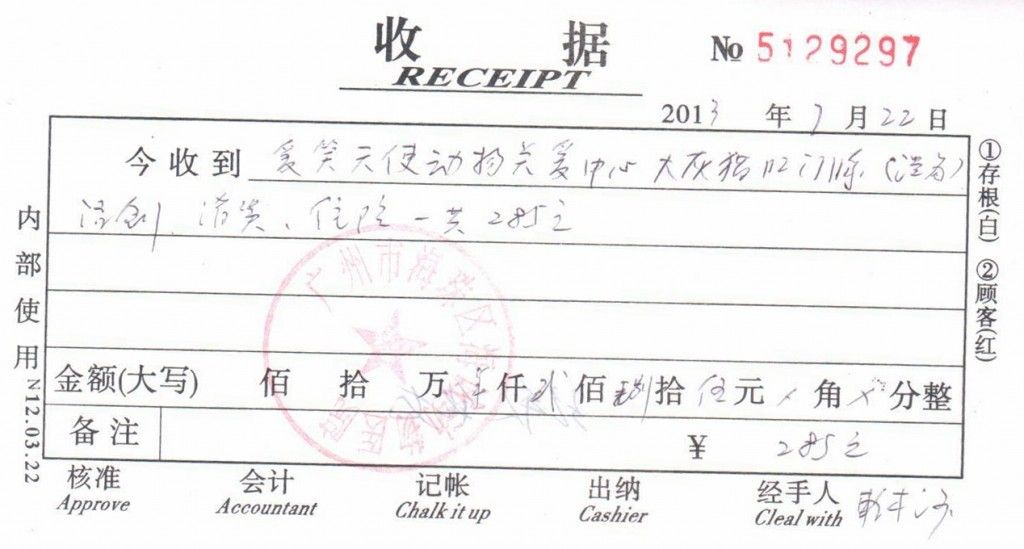 收 据 № 5129297
RECEIPT
2013 年 7 月 22 日
今收到 爱笑天使动物关爱中心 大灰猫
清创、消炎、住院 一共285元
金额(大写) 佰 拾 万 仟 贰 佰 捌 拾 伍 元 角 分整
备注 ¥ 285元
核准 会计 记帐 出纳 经手人
Approve Accountant Chalk it up Cashier Cleal with
内部使用 N12.03.22
①存根(白) ②顾客(红)
广州市海珠区